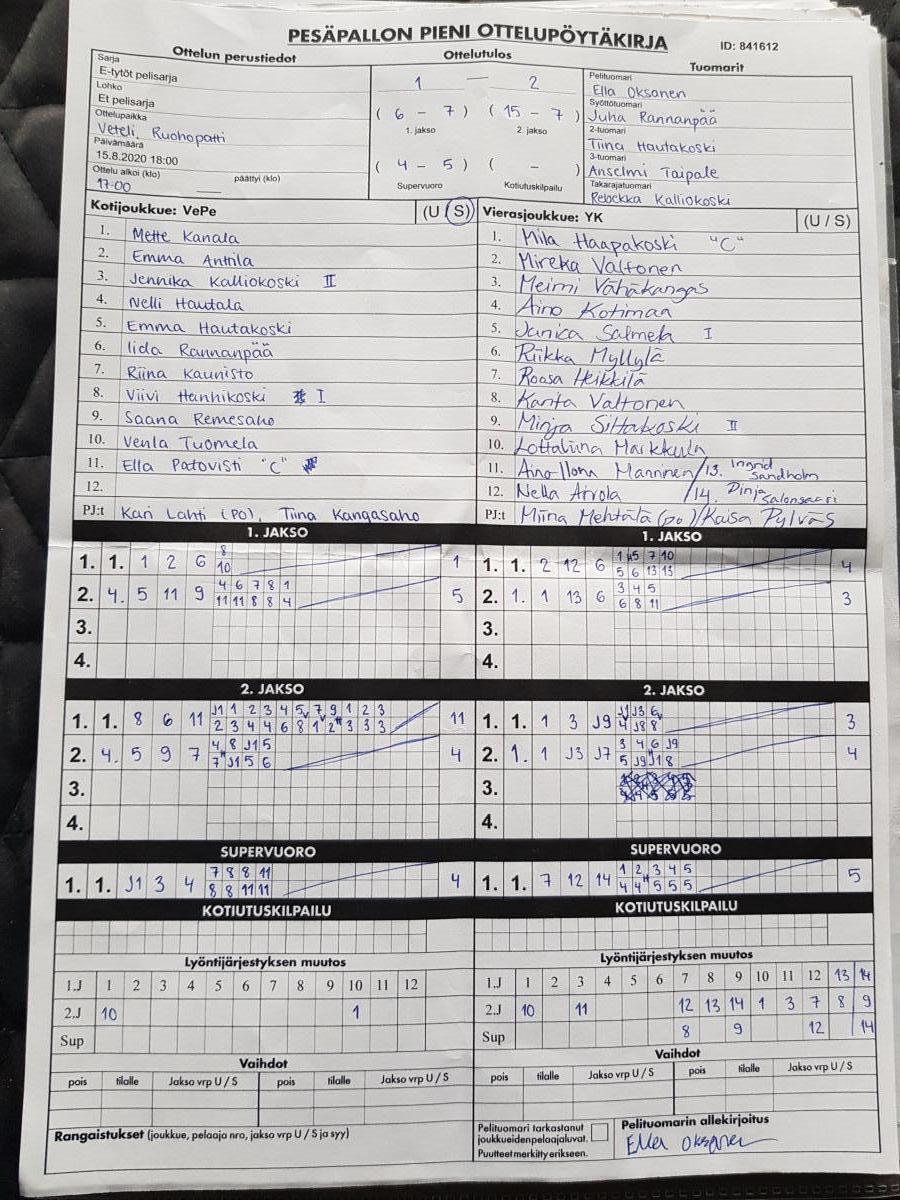 PESÄPALLON PIENI OTTELUPÖYTÄKIRJA
ID: 841612
Ottelun perustiedot
Sarja
E-tytöt pelisarja
Lohko
Et pelisarja
Ottelupaikka
Veteli, Ruohopatti
Päivämäärä
15.8.2020 18:00
Ottelu alkoi (klo) päättyi (klo)
17:00
Ottelutulos
1 — 2
( 6 - 7 ) ( 15 - 7 )
1. jakso 2. jakso
( 4 - 5 ) ( - )
Supervuoro Kotiutuskilpailu
Tuomarit
Pelituomari
Ella Oksanen
Syöttötuomari
Juha Rannanpää
2-tuomari
Tiina Hautakoski
3-tuomari
Anselmi Taipale
Takarajatuomari
Rebekka Kalliokoski
Kotijoukkue: VePe (U / S)
1. Mette Kanala
2. Emma Anttila
3. Jennika Kalliokoski II
4. Nelli Hautala
5. Emma Hautakoski
6. Iida Rannanpää
7. Riina Kaunisto
8. Viivi Hannikoski I
9. Saana Remesaho
10. Venla Tuomela
11. Ella Patovisti "C"
12.
PJ:t Kari Lahti (PO), Tiina Kangasaho
Vierasjoukkue: YK (U / S)
1. Mila Haapakoski "C"
2. Mireka Valtonen
3. Meimi Vähäkangas
4. Aino Kotiman
5. Janica Salmela I
6. Riikka Myllylä
7. Roosa Heikkilä
8. Kanta Valtonen
9. Minja Siltakoski II
10. Lottaliina Markkula
11. Aino-Ilona Manninen /13. Ingrid Sandholm
12. Nella Airola /14. Pinja Salonsaari
PJ:t Miina Mehtälä (po) / Kaisa Pylväs
1. JAKSO
1. 1. 1 2 6 8 1
10
2. 4. 5 11 9 4 6 7 8 1 5
11 11 8 8 4
3.
4.
1. JAKSO
1. 1. 2 12 6 7 10 4
5 6 13 13
2. 1. 1 13 6 3 4 5 3
6 8 11
3.
4.
2. JAKSO
1. 1. 8 6 11 J1 1 2 3 4 5 7 9 1 2 3 11
2 3 4 4 6 8 1 2 3 3 3
2. 4. 5 9 7 4 8 J1 5 4
7 J1 5 6
3.
4.
2. JAKSO
1. 1. 1 3 J9 J1 J3 6 3
4 J8 8
2. 1. 1 J3 J7 3 4 6 J9 4
5 J9 J1 8
3.
4.
SUPERVUORO
1. 1. J1 3 4 7 8 8 11 4
8 8 11 11
SUPERVUORO
1. 1. 7 12 14 1 2 3 4 5 5
4 4 5 5 5
KOTIUTUSKILPAILU
KOTIUTUSKILPAILU
Lyöntijärjestyksen muutos
1.J 1 2 3 4 5 6 7 8 9 10 11 12
2.J 10 1
Sup
Lyöntijärjestyksen muutos
1.J 1 2 3 4 5 6 7 8 9 10 11 12 13 14
2.J 10 11 12 13 14 1 3 7 8 9
Sup 8 9 12 14
Vaihdot
pois tilalle Jakso vrp U / S pois tilalle Jakso vrp U / S
Vaihdot
pois tilalle Jakso vrp U / S pois tilalle Jakso vrp U / S
Rangaistukset (joukkue, pelaaja nro, jakso vrp U / S ja syy)
Pelituomari tarkastanut
joukkueidenpelaajaluvat.
Puutteet merkitty erikseen.
Pelituomarin allekirjoitus
Ella Oksanen